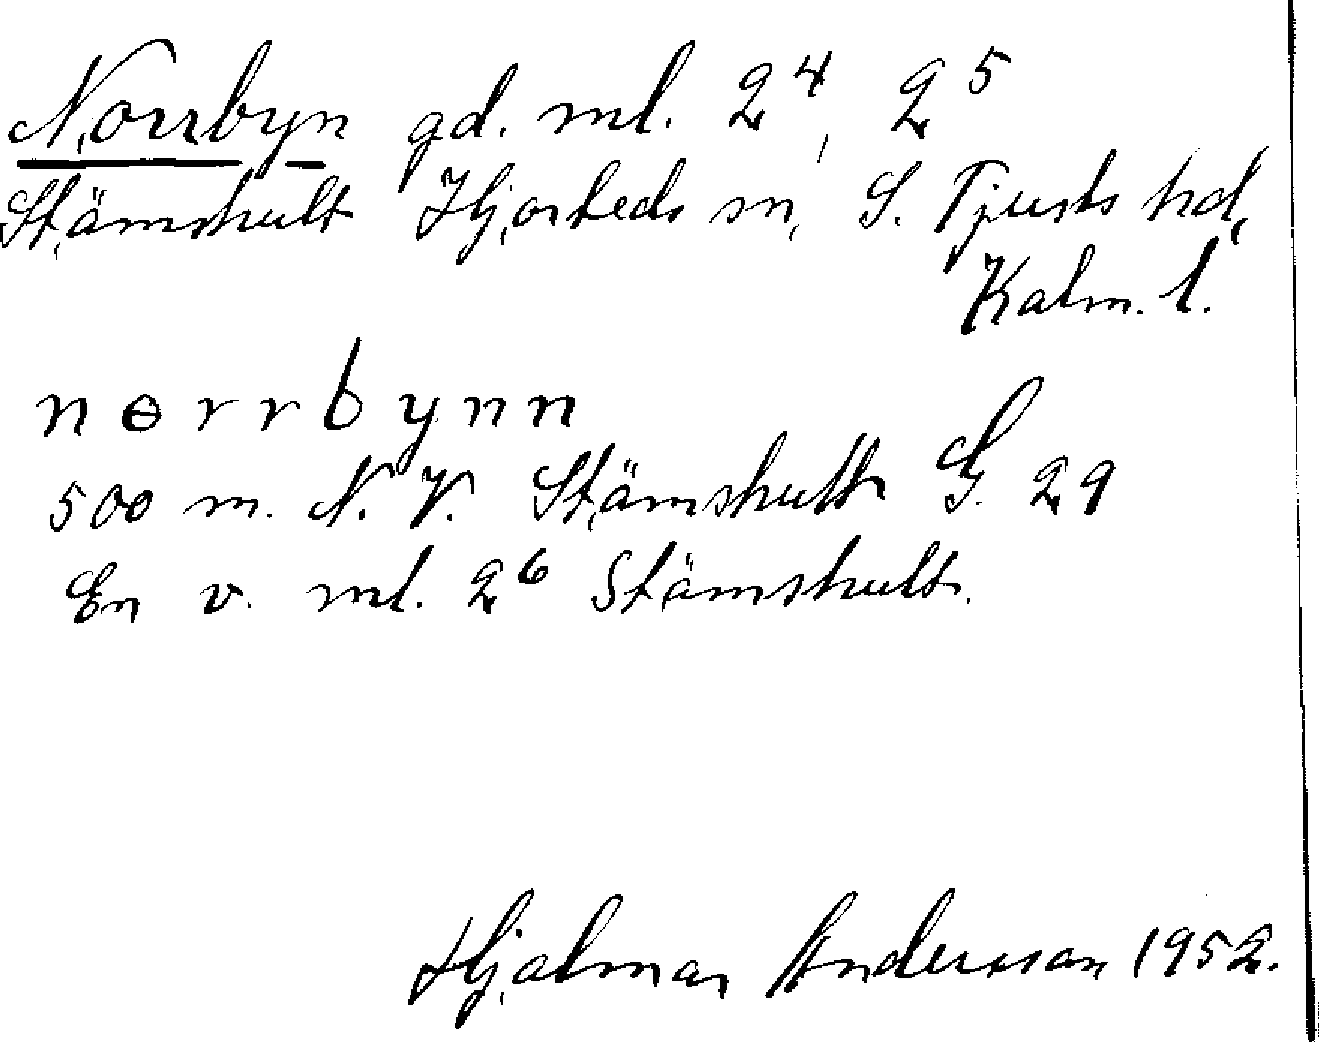 Norrbyn gd. ml. 2⁴, 2⁵
Stämshult Hjorteds sn, S. Tjusts hd,
Kalm. l.
nɵrrbynn
500 m. N. V. Stämshult G. 29
En v. ml. 2⁶ Stämshult.
Hjalmar Andersson 1952.